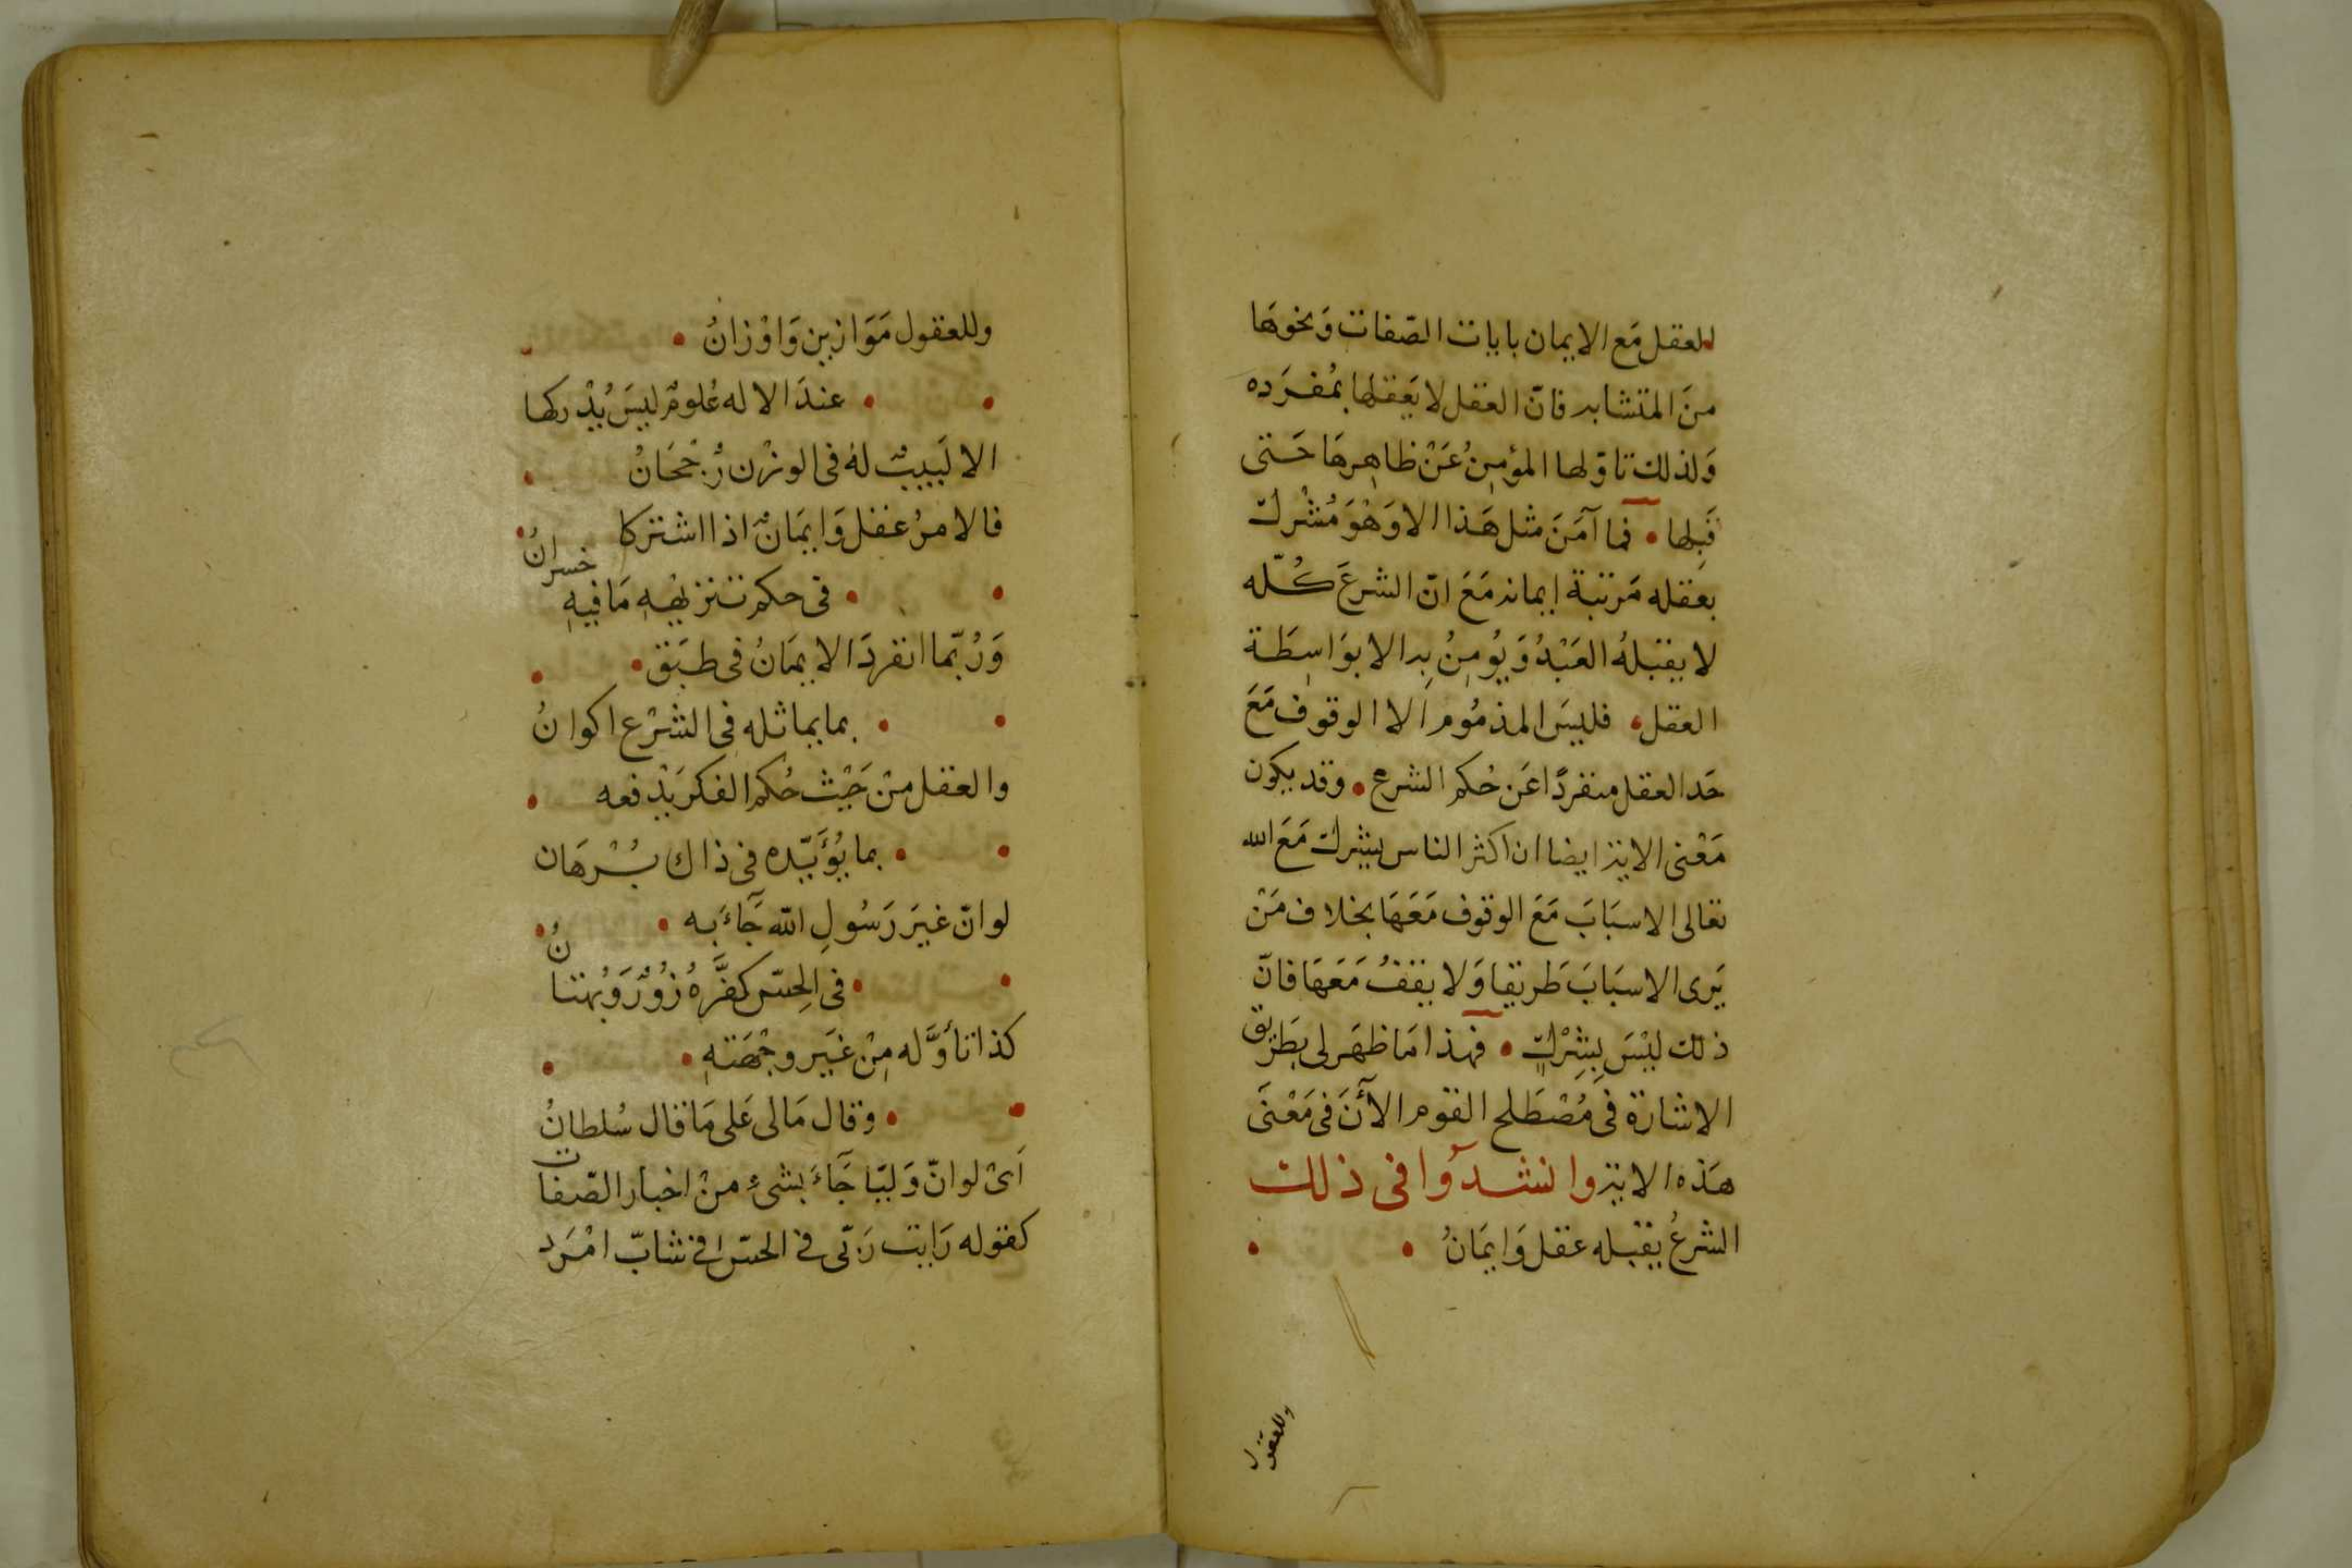 للعقل مَع الايمان بايات الصّفات وَنحوهَا
منَ المتشابه فانّ العقل لا يَعقلها بمُفرَده
وَلذلك تاوّلها المؤمِنُ عَنْ ظاهِرهَا حَتى
قَبِلها • فما آمَنَ مثل هَذا الا وَهْوَ مُشْرك
بعقله مَرتبة ايمانه مَعَ انّ الشرعَ كُلّه
لا يقبلهُ العَبْدُ وَيُومِنُ بِه الا بوَاسِطَة
العقل • فليسَ المذمُوم الا الوقوف مَعَ
حَد العقل منفردًا عَن حُكم الشرع • وقد يكون
مَعْنى الاية ايضا ان اكثر الناس يشرك مَعَ الله
تعالى الاسبَابَ مَعَ الوقوف مَعَهَا بخلاف مَنْ
يَرى الاسبَابَ طَريقا وَلا يقفُ مَعَهَا فانّ
ذلك ليْسَ بِشِرْكٍ • فهذا مَا ظهَر لى بطَريق
الاشارة فى مُصْطَلح القوم الآنَ فى مَعْنَى
هَذه الاية وانشدَوا فى ذلك
الشرعُ يقبله عقل وَايمَانُ •
وللعقول
وللعقول مَوَازين وَاوْزانُ •
• عندَ الاله عُلومٌ ليسَ يُدْركها
الا لَبيبٌ لهُ فى الوزْن رُجْحَانُ
فالامرُ عقل وَايمَانٌ اذا اشتركا
• فى حكم تنزيهِهِ مَا فيهِ خسرانُ
وَرُبّما انفردَ الايمَانُ فى طبَق •
• بما يماثله فى الشرْع اكوانُ
والعقل منْ حَيْث حُكم الفكر يَدْفعه •
• بما يُؤَيّده فى ذاك بُرْهَان
لو انّ غيَر رَسُولِ الله جَآءَ به •
• فى الحِسّ كفَّرَهُ زُورٌ وَبُهتانُ
كذا تأوَّله مِنْ غيَر وجْهَتهِ •
• وقال مَالى عَلى مَا قال سُلطانُ
اَىْ لو انّ وَليّا جَآءَ بشىءٍ منْ اخبار الصّفات
كقوله رَايت رَبّى فى الحسّ فى شابّ امْرَد